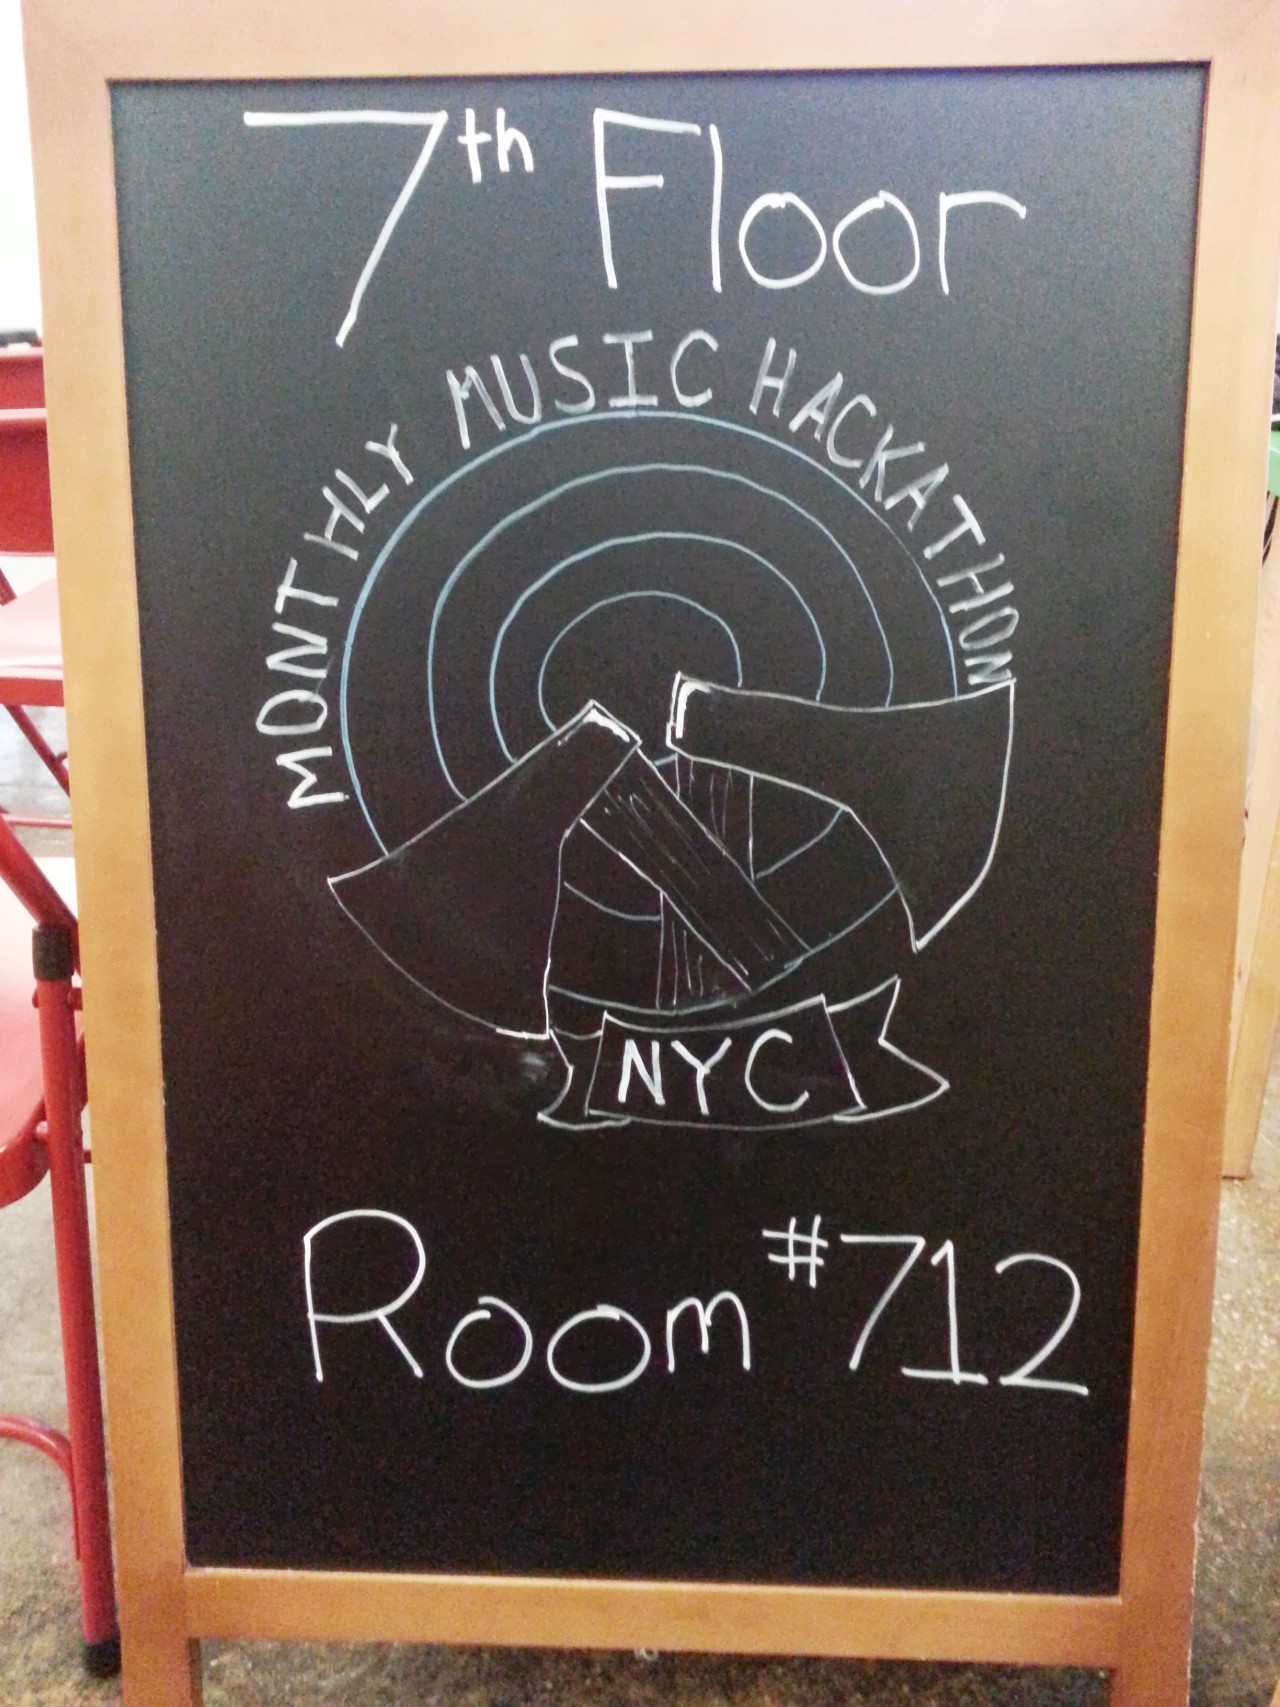 7th Floor
MONTHLY MUSIC HACKATHON
NYC
Room #712